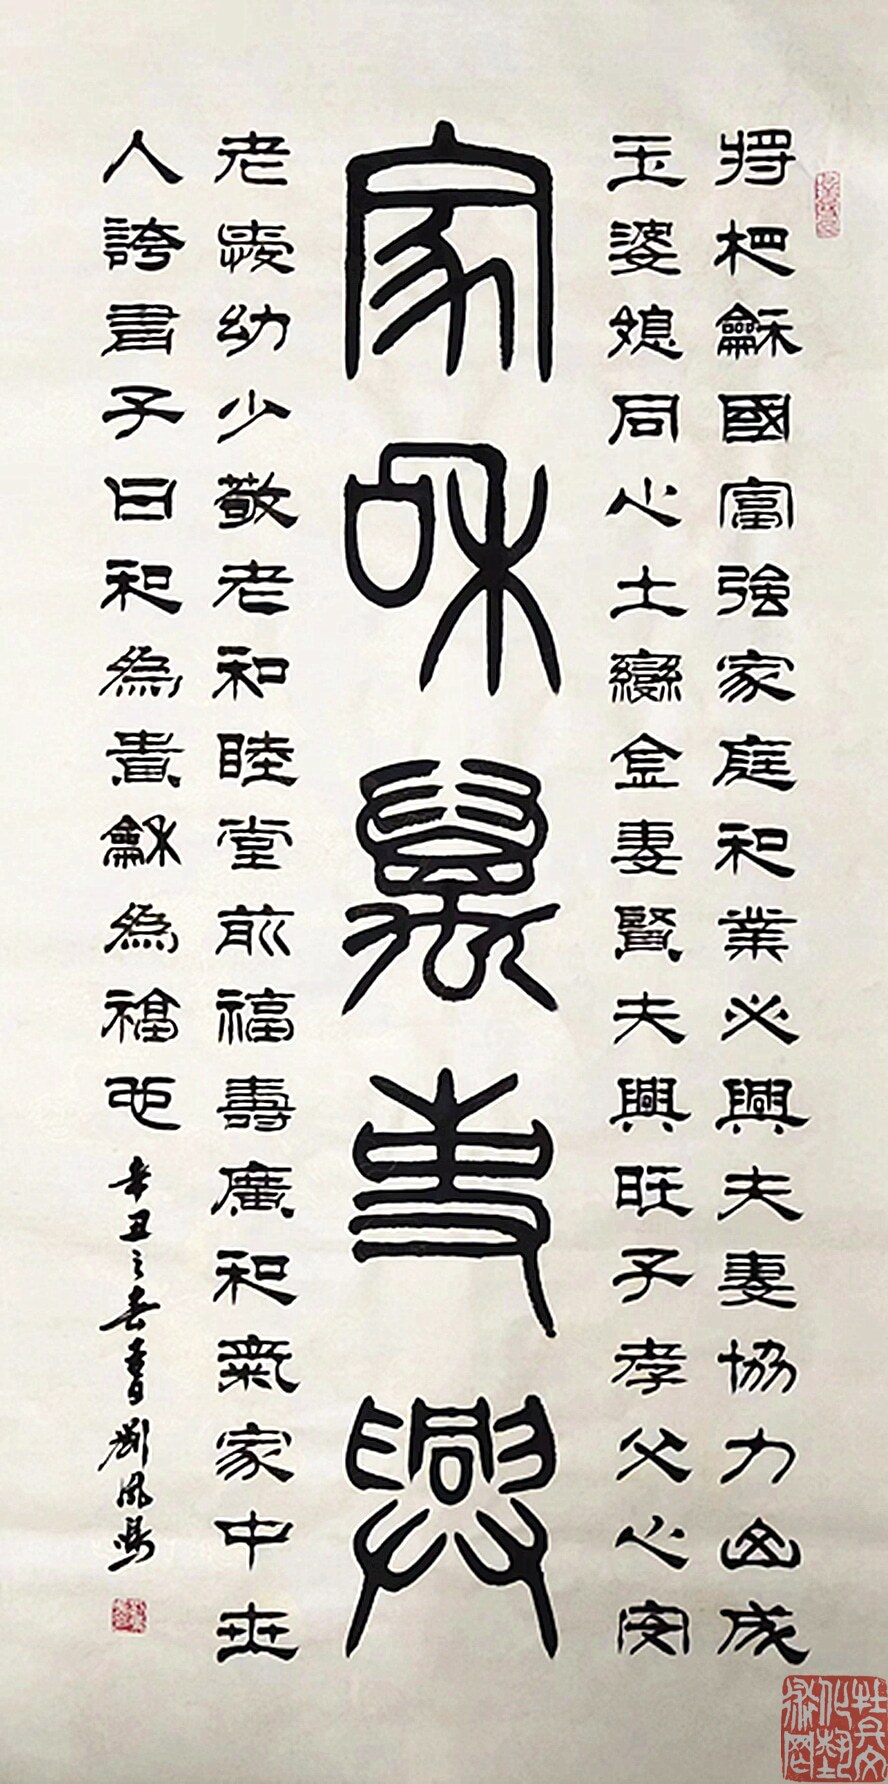 將相龢國富強家庭和業必興夫妻協力山成
玉婆媳同心土變金妻賢夫興旺子孝父心安
家和萬事興
老愛幼少敬老和睦堂前福壽廣和氣家中世
人誇書子曰和為貴龢為福也
辛丑之春書劉鳳